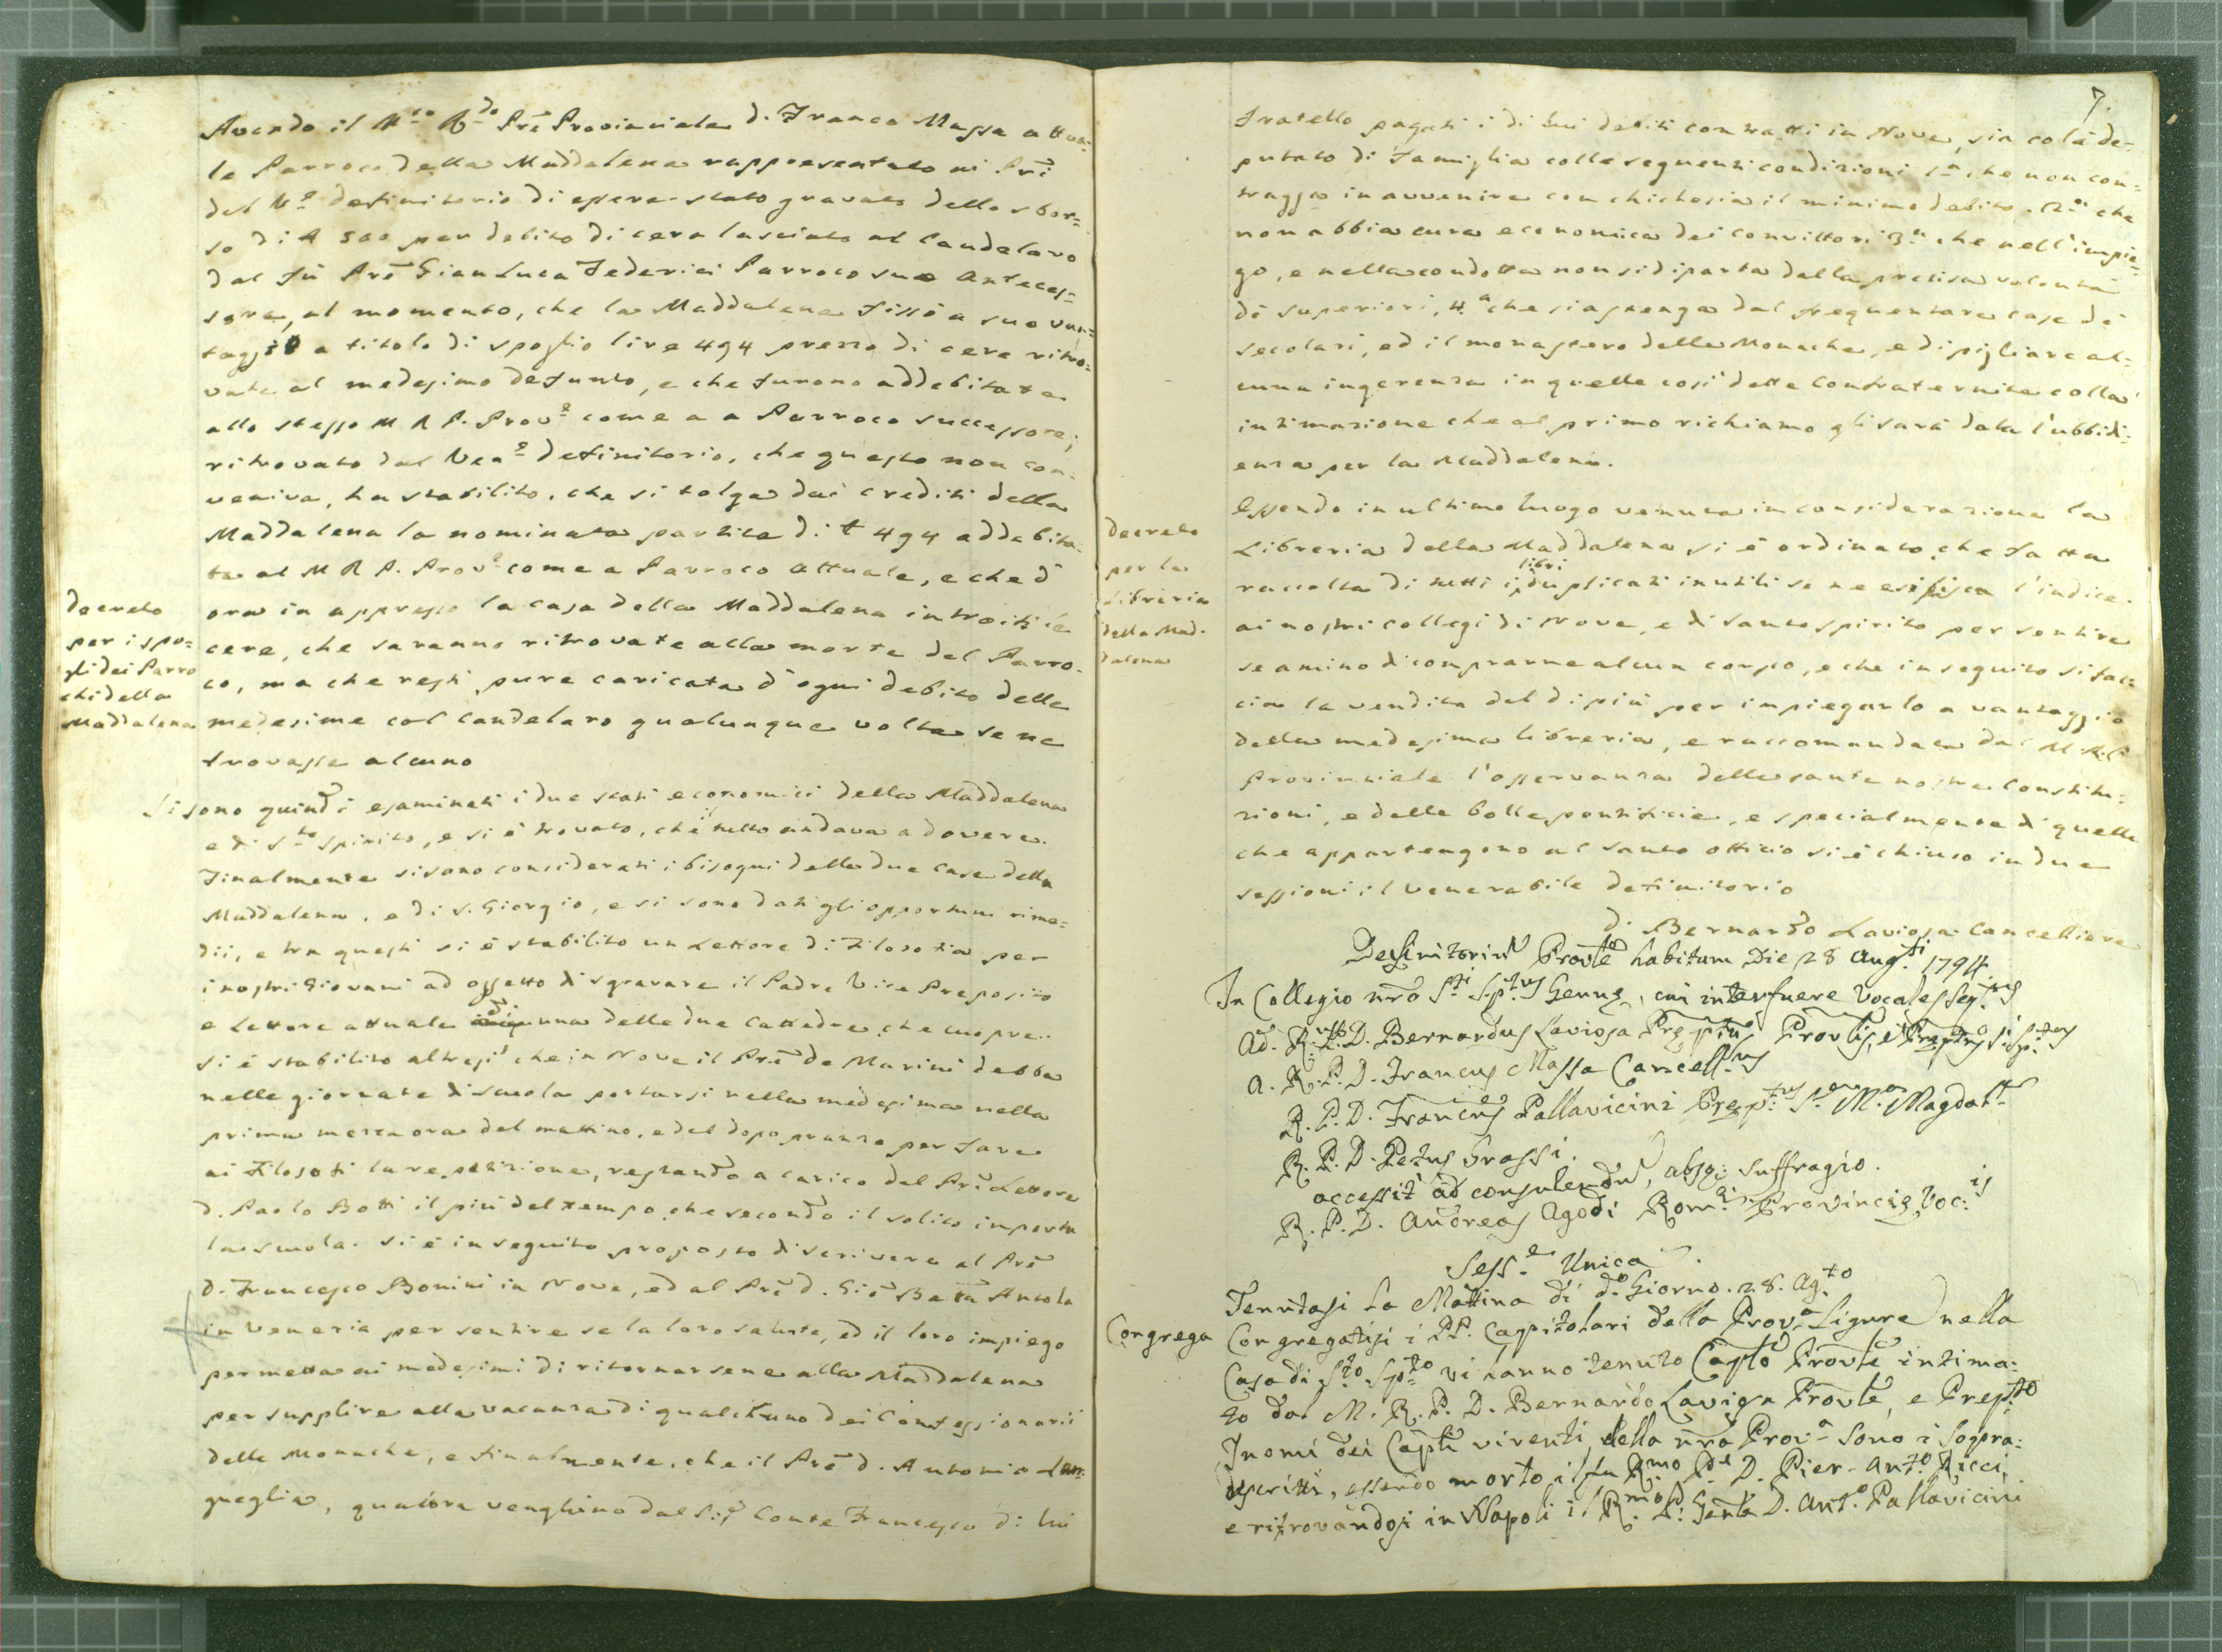 Avendo il M.to R.do Prē Provinciale d. Franco Massa attua-
le Parroco della Maddalena rappresentato ai Prī
del V.e definitorio di essere stato gravato dello sbor=
so di £ 500 per debito di cera lasciato al Candelaro
dal fù Prē Gian Luca Federici Parroco suo Anteces=
sore, al momento, che la Maddalena fissò a suo van=
taggio a titolo di spoglio lire 494 prezzo di cere ritro=
vate al medesimo defunto, e che furono addebitate
allo stesso M R P. Prov.e come a a Parroco successore;
ritrovato dal Ven.e definitorio, che questo non con-
veniva, ha stabilito, che si tolga dai crediti della
Maddalena la nominata partita di £ 494 addebita-
ta al M R P. Prov.e come a Parroco attuale, e che d'
ora in appresso la casa della Maddalena introiti le
cere, che saranno ritrovate alla morte del Parro-
co, ma che resti pure caricata d'ogni debito delle
medesime col Candelaro qualunque volta se ne
trovasse alcuno
decreto
per i spo=
gli dei Parro
chi della
Maddalena
Si sono quindi esaminati i due stati economici della Maddalena
e di S.to Spirito, e si è trovato, che il tutto andava a dovere.
Finalmente si sono considerati i bisogni delle due Case della
Maddalena, e di S. Giorgio, e si sono dati gli opportuni rime=
dii, e tra questi si è stabilito un Lettore di Filosofia per
i nostri Giovani ad oggetto di sgravare il Padre Vice Preposito
e Lettore attuale di una delle due Cattedre, che cuopre..
si è stabilito altresì che in Nove il Prē de Marini debba
nelle giornate di scuola portarsi nella medesima nella
prima mezza ora del mattino, e del dopo pranzo per fare
ai Filosofi la repetizione, restando a carico del Prē Lettore
d. Paolo Botti il più del tempo che secondo il solito importa
la scuola. si è in seguito proposto di scrivere al Prē
d. Francesco Bonini in Nove, ed al Prē d. Giō Batta Ansola
in Venezia per sentire se la loro salute, ed il loro impiego
permetta ai medesimi di ritornarsene alla Maddalena
per supplire alla vacanza di qualchuno dei Confessionarii
delle Monache, e finalmente, che il Prē d. Antonio Lan-
gueglia, qualora venghino dal Si.r Conte Francesco di lui
7.
fratello pagati i di lui debiti contratti in Nove, sia colà de=
putato di famiglia colle seguenti condizioni 1.a che non con=
tragga in avvenire con chichesia il minimo debito. 2.a che
non abbia cura economica dei convittori 3.a che nell'impie=
go, e nella condotta non si diparta dalla precisa volontà
di superiori, 4.a che si astenga dal frequentare case di
secolari, ed il monastero delle Monache, e di pigliare al=
cuna ingerenza in quelle così dette Confraternite colla
intimazione che al primo richiamo gli sarà data l'ubbidi=
enza per la Maddalena.
Essendo in ultimo luogo venuta in considerazione la
Libreria della Maddalena si è ordinato, che fatta
raccolta di tutti i libri duplicati inutili se ne esibisca l'indice
ai nostri collegi di Nove, e di Santo Spirito per sentire
se amino di comprarne alcun corpo, e che in seguito si fac=
cia la vendita del di più per impiegarlo a vantaggio
della medesima libreria, e raccomandata dal M.R.P.
Provinciale l'osservanza delle sante nostre Constitu=
zioni, e delle bolle pontificie, e specialmente di quelle
che appartengono al Santo officio si è chiuso in due
sessioni il venerabile definitorio
d. Bernardo Laviosa Cancelliere
decreto
per la
Libreria
della Mad-
dalena
Definitoriũ Provle habitum Die 28 Aug.ti 1794.
In Collegio nrō S.ti Sp.tus Genuę, cui interfuere Vocales seq.tes
Ad. R. P. D. Bernardus Laviosa Prępus Provlis, et Prępus S. Sp.tus
A. R. P. D. Francus Massa Cancell.us
R. P. D. Francus Pallavicini Pręp.tus S.a M.a Magdal.
R. P. D. Petrus Grassi.
accessit ad consulendũ, absq; suffragio.
R. P. D. Andreas Agodi Rom.ę Provincię Voc.is
Sess.e Unica.
Tenutasi la Mattina di d.o Giorno. 28. Ag.to
Congrega
Congregatisi i PP. Capitolari della Prov.a Ligure nella
Casa di S.to Sp.to vi hanno tenuto Caplo Provle intima:
to dal M. R. P. D. Bernardo Laviosa Provle, e Prep.to
I nomi dei Caplī viventi della nrā Prov.a sono i sopra:
descritti, essendo morto il fu R.mo P.e D. Pier-Ant.o Ricci,
e ritrovandosi in Napoli il R.mo P. Genle D. Ant.o Pallavicini